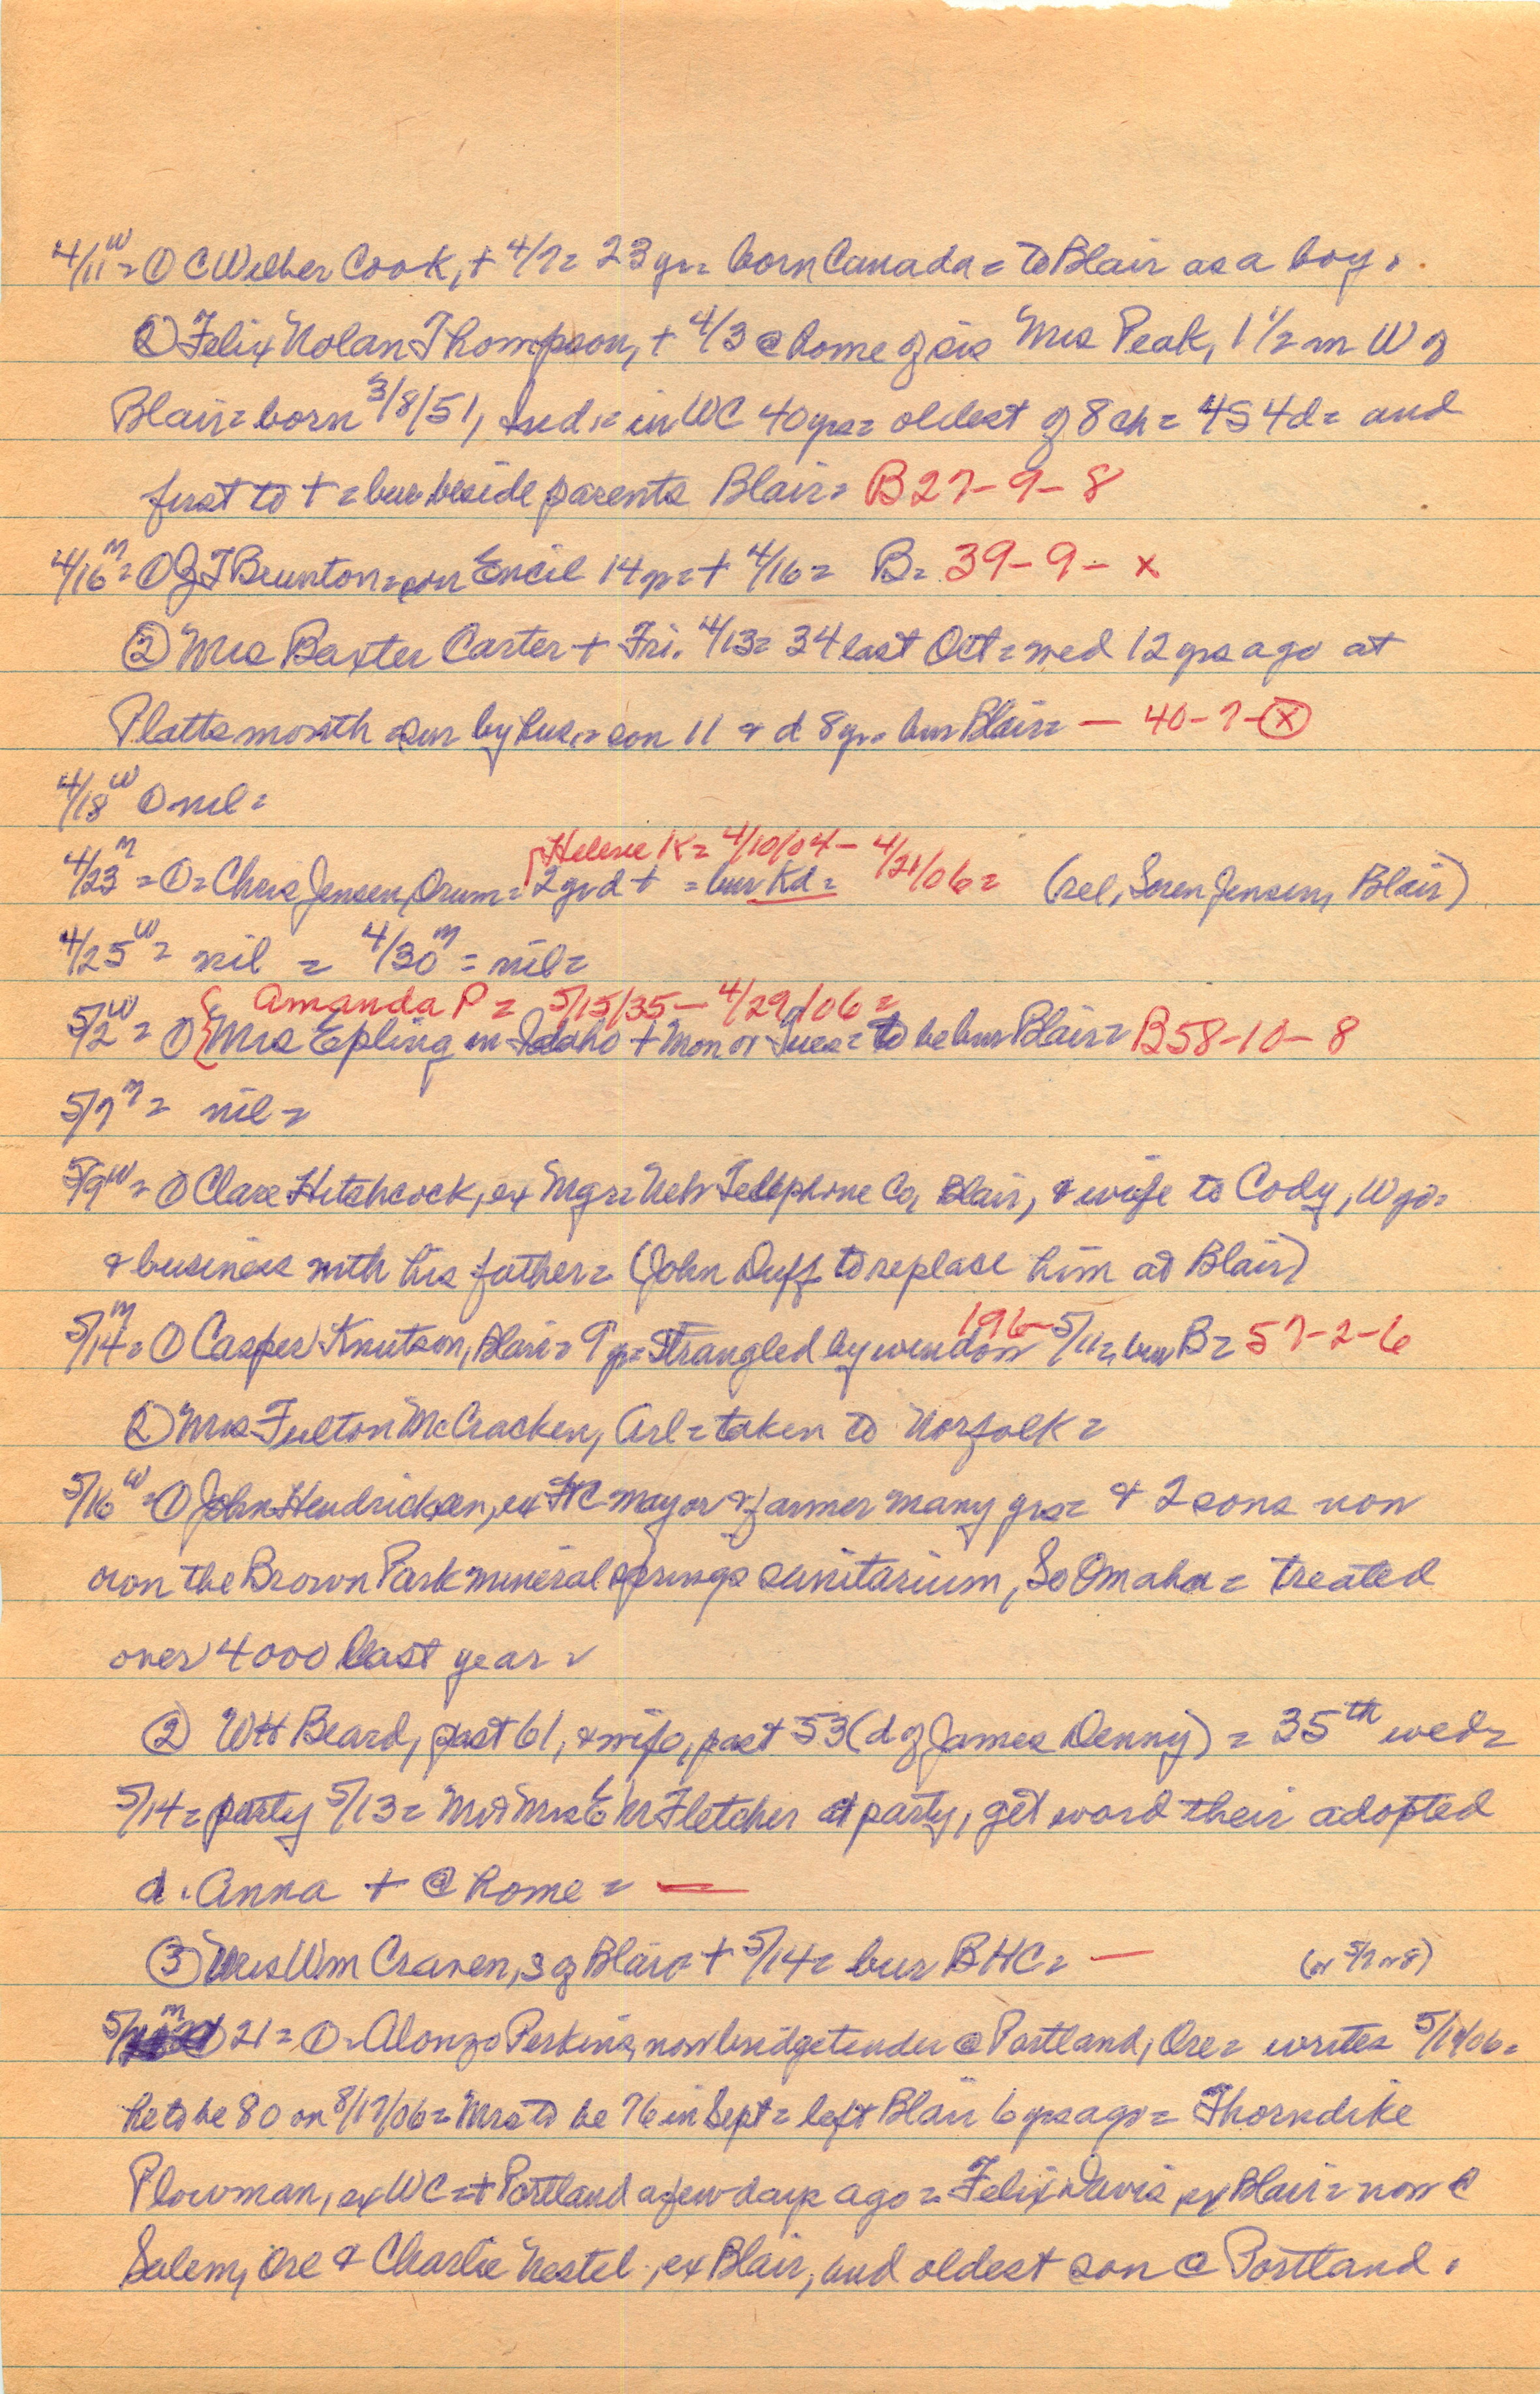 4/11 W = ① C Wilber Cook, + 4/7 = 23 yr = born Canada = to Blair as a boy.
② Felix Nolan Thompson, + 4/3 @ home of sis Mrs Peak, 1 1/2 m W of
Blair = born 3/8/51, Ind. = in WC 40 yrs = oldest of 8 ch = 4S 4d = and
first to + = bur beside parents Blair = B27-9-8
4/16 M = ① J T Brunton = son Encil 14 yr = + 4/16 = B = 39-9-x
② Mrs Baxter Carter + Fri. 4/13 = 34 last Oct = wed 12 yrs ago at
Plattsmouth = sur by hus. = son 11 & d 8 yr = bur Blair = — 40-7-ⓧ
4/18 W ① nil =
Helene K = 4/10/04 - 4/21/06 =
4/23 M = ① = Chris Jensen, Orum = 2 yr d + = bur Kd = (rel, Soren Jensen, Blair)
4/25 W = nil = 4/30 M = nil =
Amanda P = 5/15/35 - 4/29/06 =
5/2 W = ① { Mrs Epling in Idaho + Mon or Tues = to be bur Blair = B58-10-8
5/7 M = nil =
5/9 W = ① Clare Hitchcock, ex Mgr = Neb Telephone Co, Blair, & wife to Cody, Wyo =
& business with his father = (John Duff to replace him at Blair)
196-
5/14 M = ① Casper Knutson, Blair = 9 yr = Strangled by window 5/11 = bur B = 57-2-6
② Mrs Fulton McCracken, Arl = taken to Norfolk =
5/16 W = ① John Hendricksen, ex FtC mayor & farmer many yrs = & 2 sons now
own the Brown Park mineral springs sanitarium, So Omaha = treated
over 4000 last year =
② WH Beard, past 61, & wife, past 53 (d of James Denny) = 35th wed =
5/14 = party 5/13 = Mr & Mrs E M Fletcher at party, get word their adopted
d. Anna + @ home = —
③ Mrs Wm Craven, S of Blair = + 5/14 = bur BHC = — (or 5/7 or 8)
5/21 M = ① = Alonzo Perkins, now bridgetender @ Portland, Ore = writes 5/14/06 =
he to be 80 on 8/17/06 = Mrs to be 76 in Sept = left Blair 6 yrs ago = Thorndike
Plowman, ex WC = + Portland a few days ago = Felix Davis, ex Blair = now @
Salem, Ore & Charlie Nestel, ex Blair, and oldest son @ Portland.